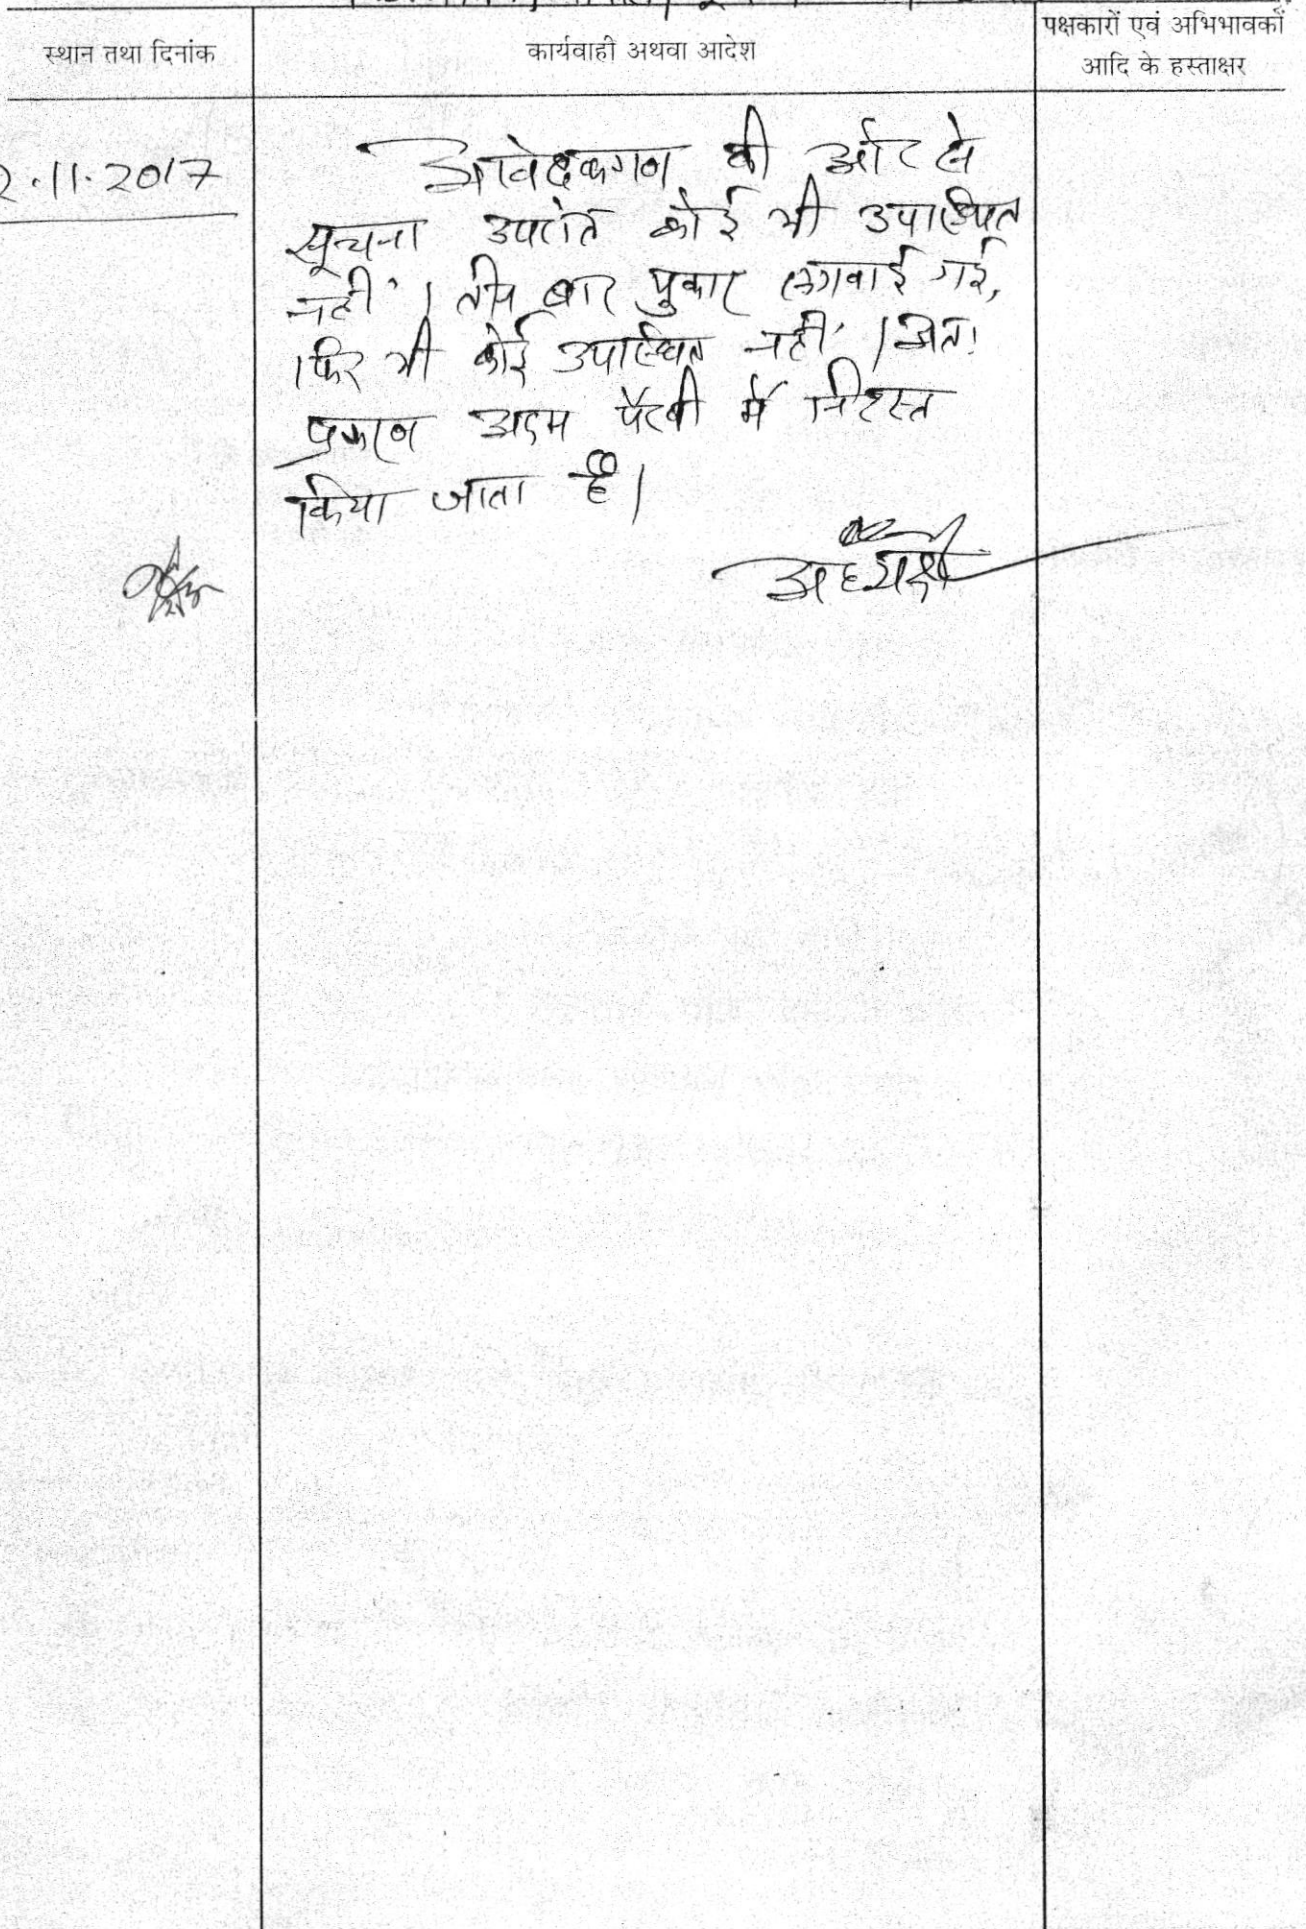 स्थान तथा दिनांक
कार्यवाही अथवा आदेश
पक्षकारों एवं अभिभावकों
आदि के हस्ताक्षर
2.11.2017
आवेदकगण की ओर से
सूचना उपरांत कोई भी उपस्थित
नहीं । तीन बार पुकार लगवाई गई,
फिर भी कोई उपस्थित नहीं । अतः
प्रकरण अदम पैरवी में निरस्त
किया जाता है ।
अध्यक्ष